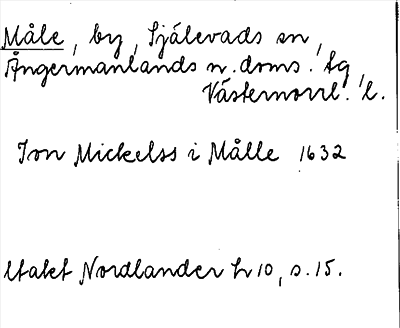 Måle, by, Själevads sn,
Ångermanlands n. doms. tg,
Västernorrl. l.
Jon Mickelss i Målle 1632
Utakt Nordlander h 10, s. 15.